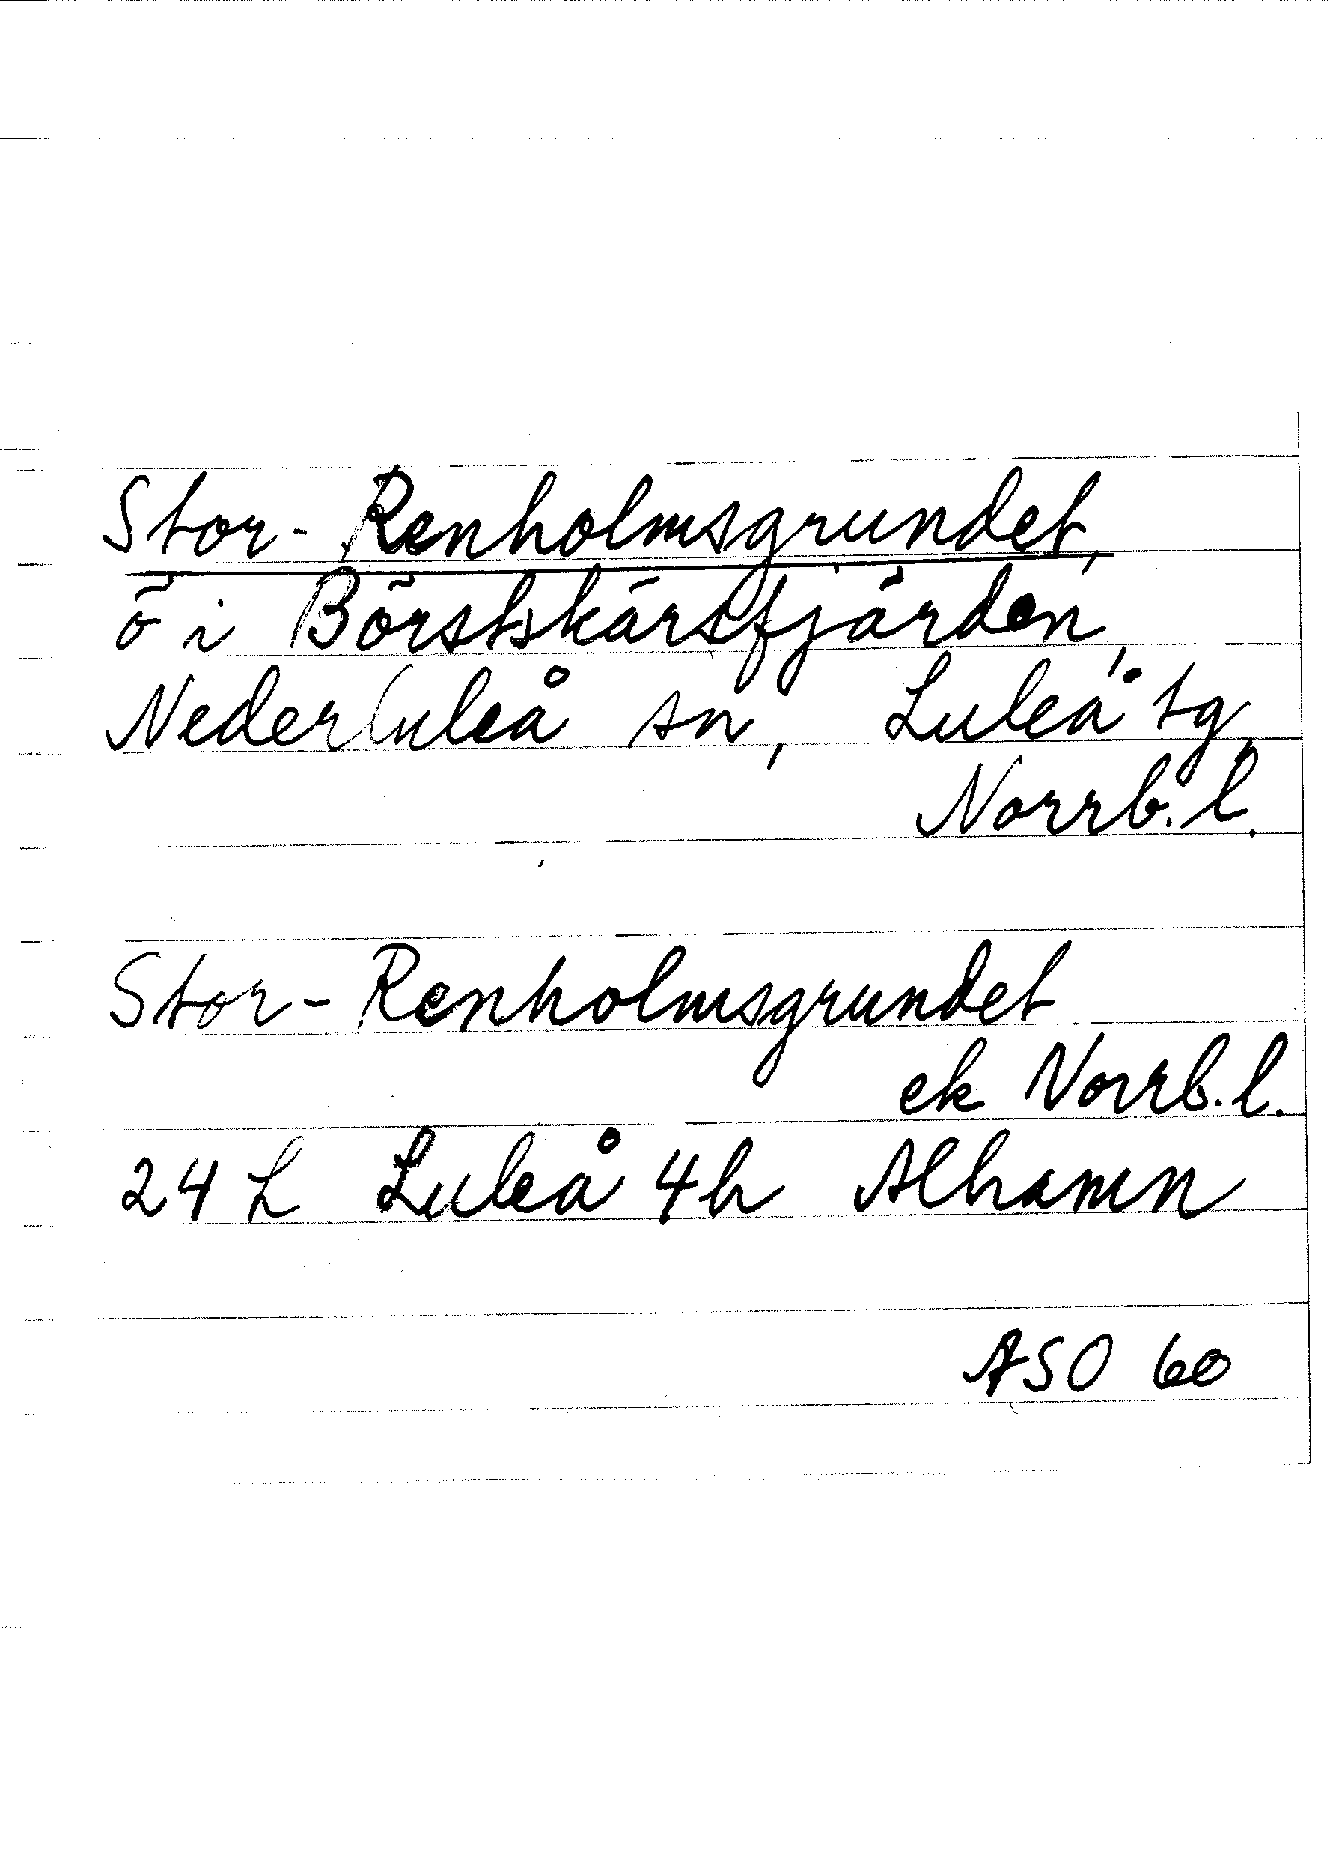 Stor-Renholmsgrundet,
ö i Börstskärsfjärden,
Nederluleå sn, Luleå tg,
Norrb. l.
Stor-Renholmsgrundet
ek Norrb. l.
24 L Luleå 4h Alhamn
ASO 60